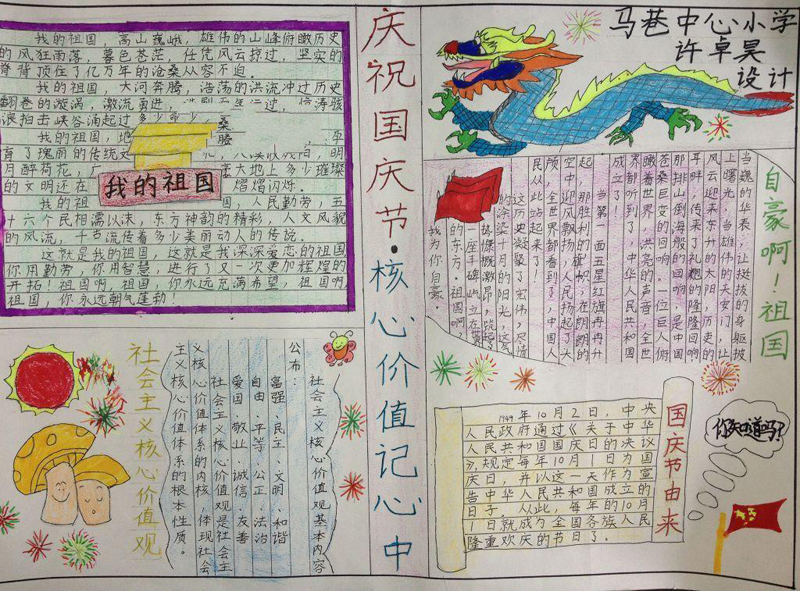 我的祖国，高山巍峨，雄伟的山峰俯瞰历史
的风狂雨落，暮色苍茫，任凭风云掠过，坚实的
脊背顶住了亿万年的沧桑从容不迫。
我的祖国，大河奔腾，浩荡的洪流冲过历史
翻卷的漩涡，激流勇进，
浪拍击峡谷涌起过多少
我的祖国，地
育了瑰丽的传统文
月醉荷花，
大地上多少璀璨
的文明还在
熠熠闪烁。
我的祖国
国，人民勤劳，五
十六个民相濡以沫，东方神韵的精彩，人文风貌
的风流，千古流传着多少美丽动人的传说。
这就是我的祖国，这就是我深深爱恋的祖国
你用勤劳，你用智慧，进行了又一次更加辉煌的
开拓！祖国啊，祖国，你永远充满希望，祖国啊
祖国，你永远朝气蓬勃！
庆祝国庆节·核心价值记心中
马巷中心小学
许卓昊
设计
自豪啊！祖国
当巍的华表，让挺拔的身躯披
上曙光，当雄伟的天安门，让
风云迎来东升的太阳，历史的
耳畔，传来了礼炮的隆隆回响
那排山倒海般的回响，是中国
苍桑巨变的回响。一位巨人俯
瞰着世界，洪亮的声音，全世
界都听到了，中华人民共和国
成立了
当第一面五星红旗冉冉升
起，
那胜利的旗帜，在朗朗的
空中迎风飘扬，人民扬起了大
颅，全世界都看到了，中国人
民从此站起来了！
这历史凝聚了宏伟，尽情
的涂染十月的阳光，这
气概激昂，筑起
一座丰碑屹立在世界
的东方。祖国啊
我为你自豪。
社会主义核心价值观
社会主义核心价值观基本内容
公布：
富强、民主、文明、和谐
自由、平等、公正、法治
爱国、敬业、诚信、友善
社会主义核心价值观是社会主
义核心价值体系的内核，体现社会
主义核心价值体系的根本性质。
国庆节由来
1949年10月2日，中央
人民政府通过《关于中华
人民共和国国庆日的决议
》，规定每年10月1日为国
庆日，并以这一天作为宣
告中华人民共和国成立的
日子。从此，每年的10月
1日就成为全国各族人民
隆重欢庆的节日了。
你知道吗？